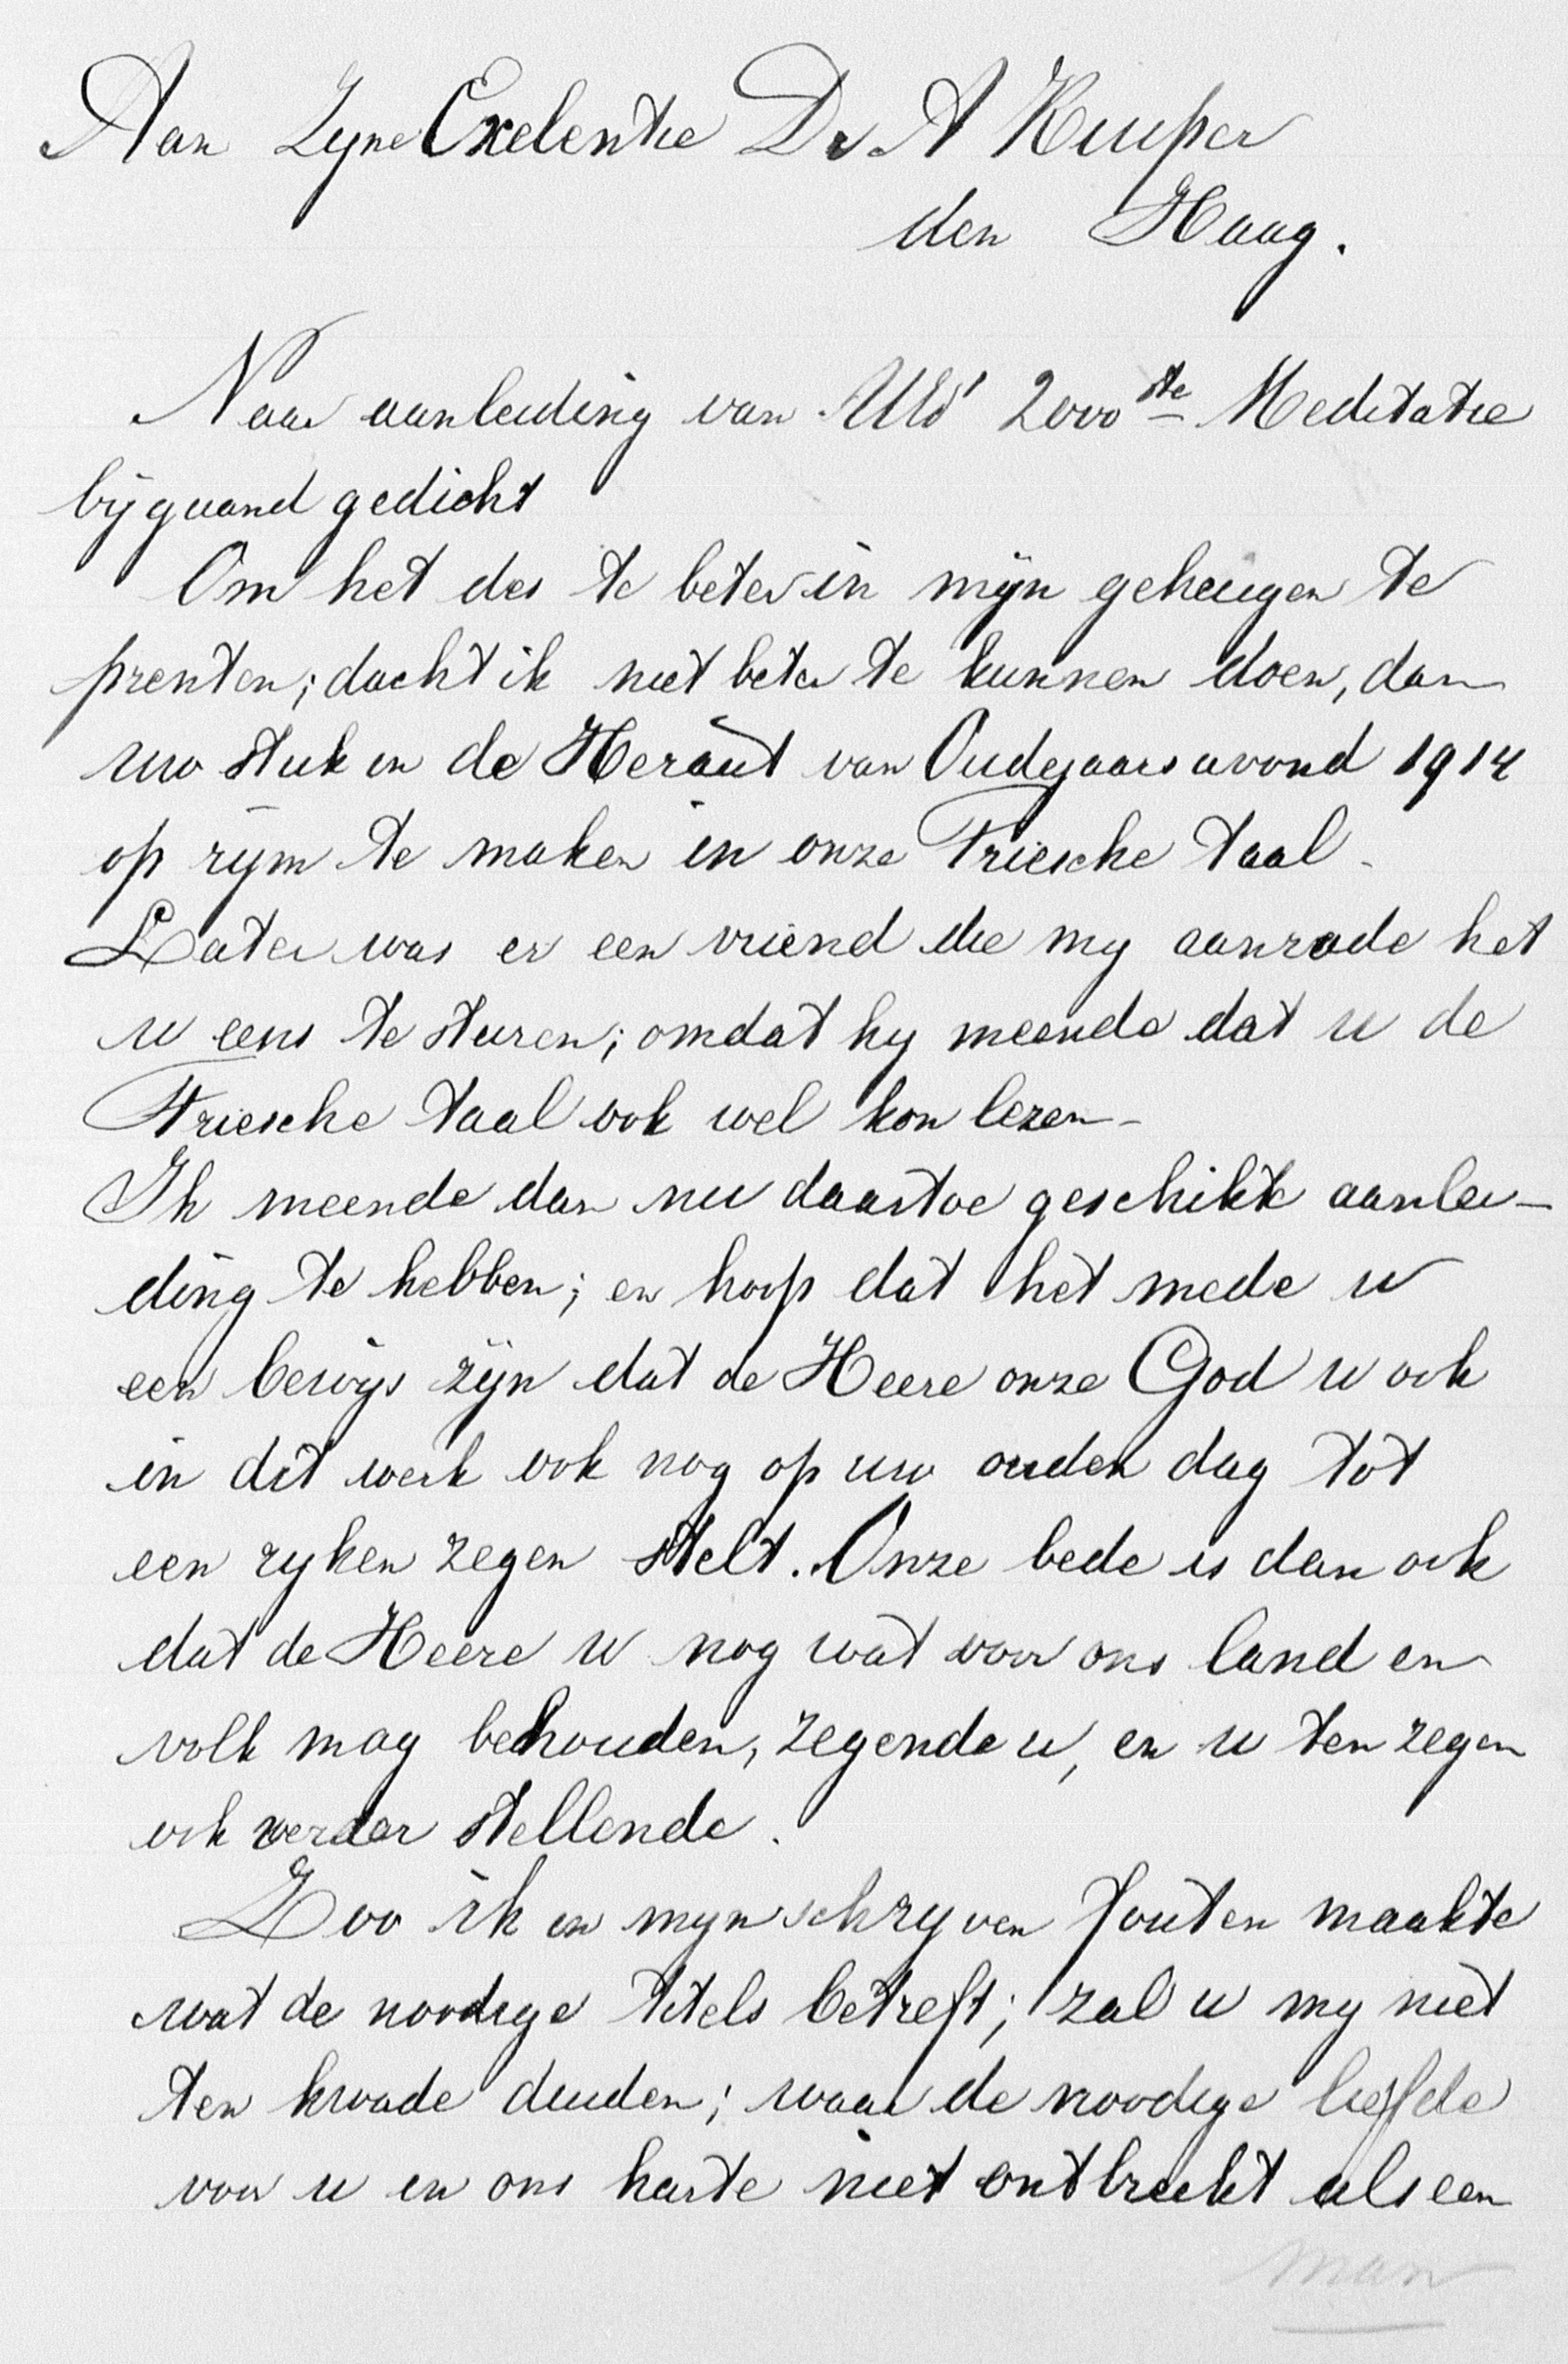 Aan Zyne Exelentie Dr. A Kuiper
den Haag.
Naar aanleiding van UEd' 2000ste Meditatie
bijgaand gedicht
Om het des te beter in mijn geheugen te
prenten; dacht ik niet beter te kunnen doen, dan
uw stuk in de Heraut van Oudejaarsavond 1914
op rijm te maken in onze Friesche taal.
Later was er een vriend die my aanrade het
u eens te sturen; omdat hy meende dat u de
Friesche taal ook wel kon lezen-
Ik meende dan nu daartoe geschikte aanlei-
ding te hebben; en hoop dat het mede u
een bewijs zijn dat de Heere onze God u ook
in dit werk ook nog op uw ouden dag tot
een ryken zegen stelt. Onze bede is dan ook
dat de Heere u nog wat voor ons land en
volk mag behouden, zegende u, en u ten zegen
ook verder stellende.
Zoo ik in myn schryven fouten maakte
wat de noodige titels betreft; zal u my niet
ten kwade duiden; waar de noodige liefde
voor u in ons harte niet ontbreekt als een
man